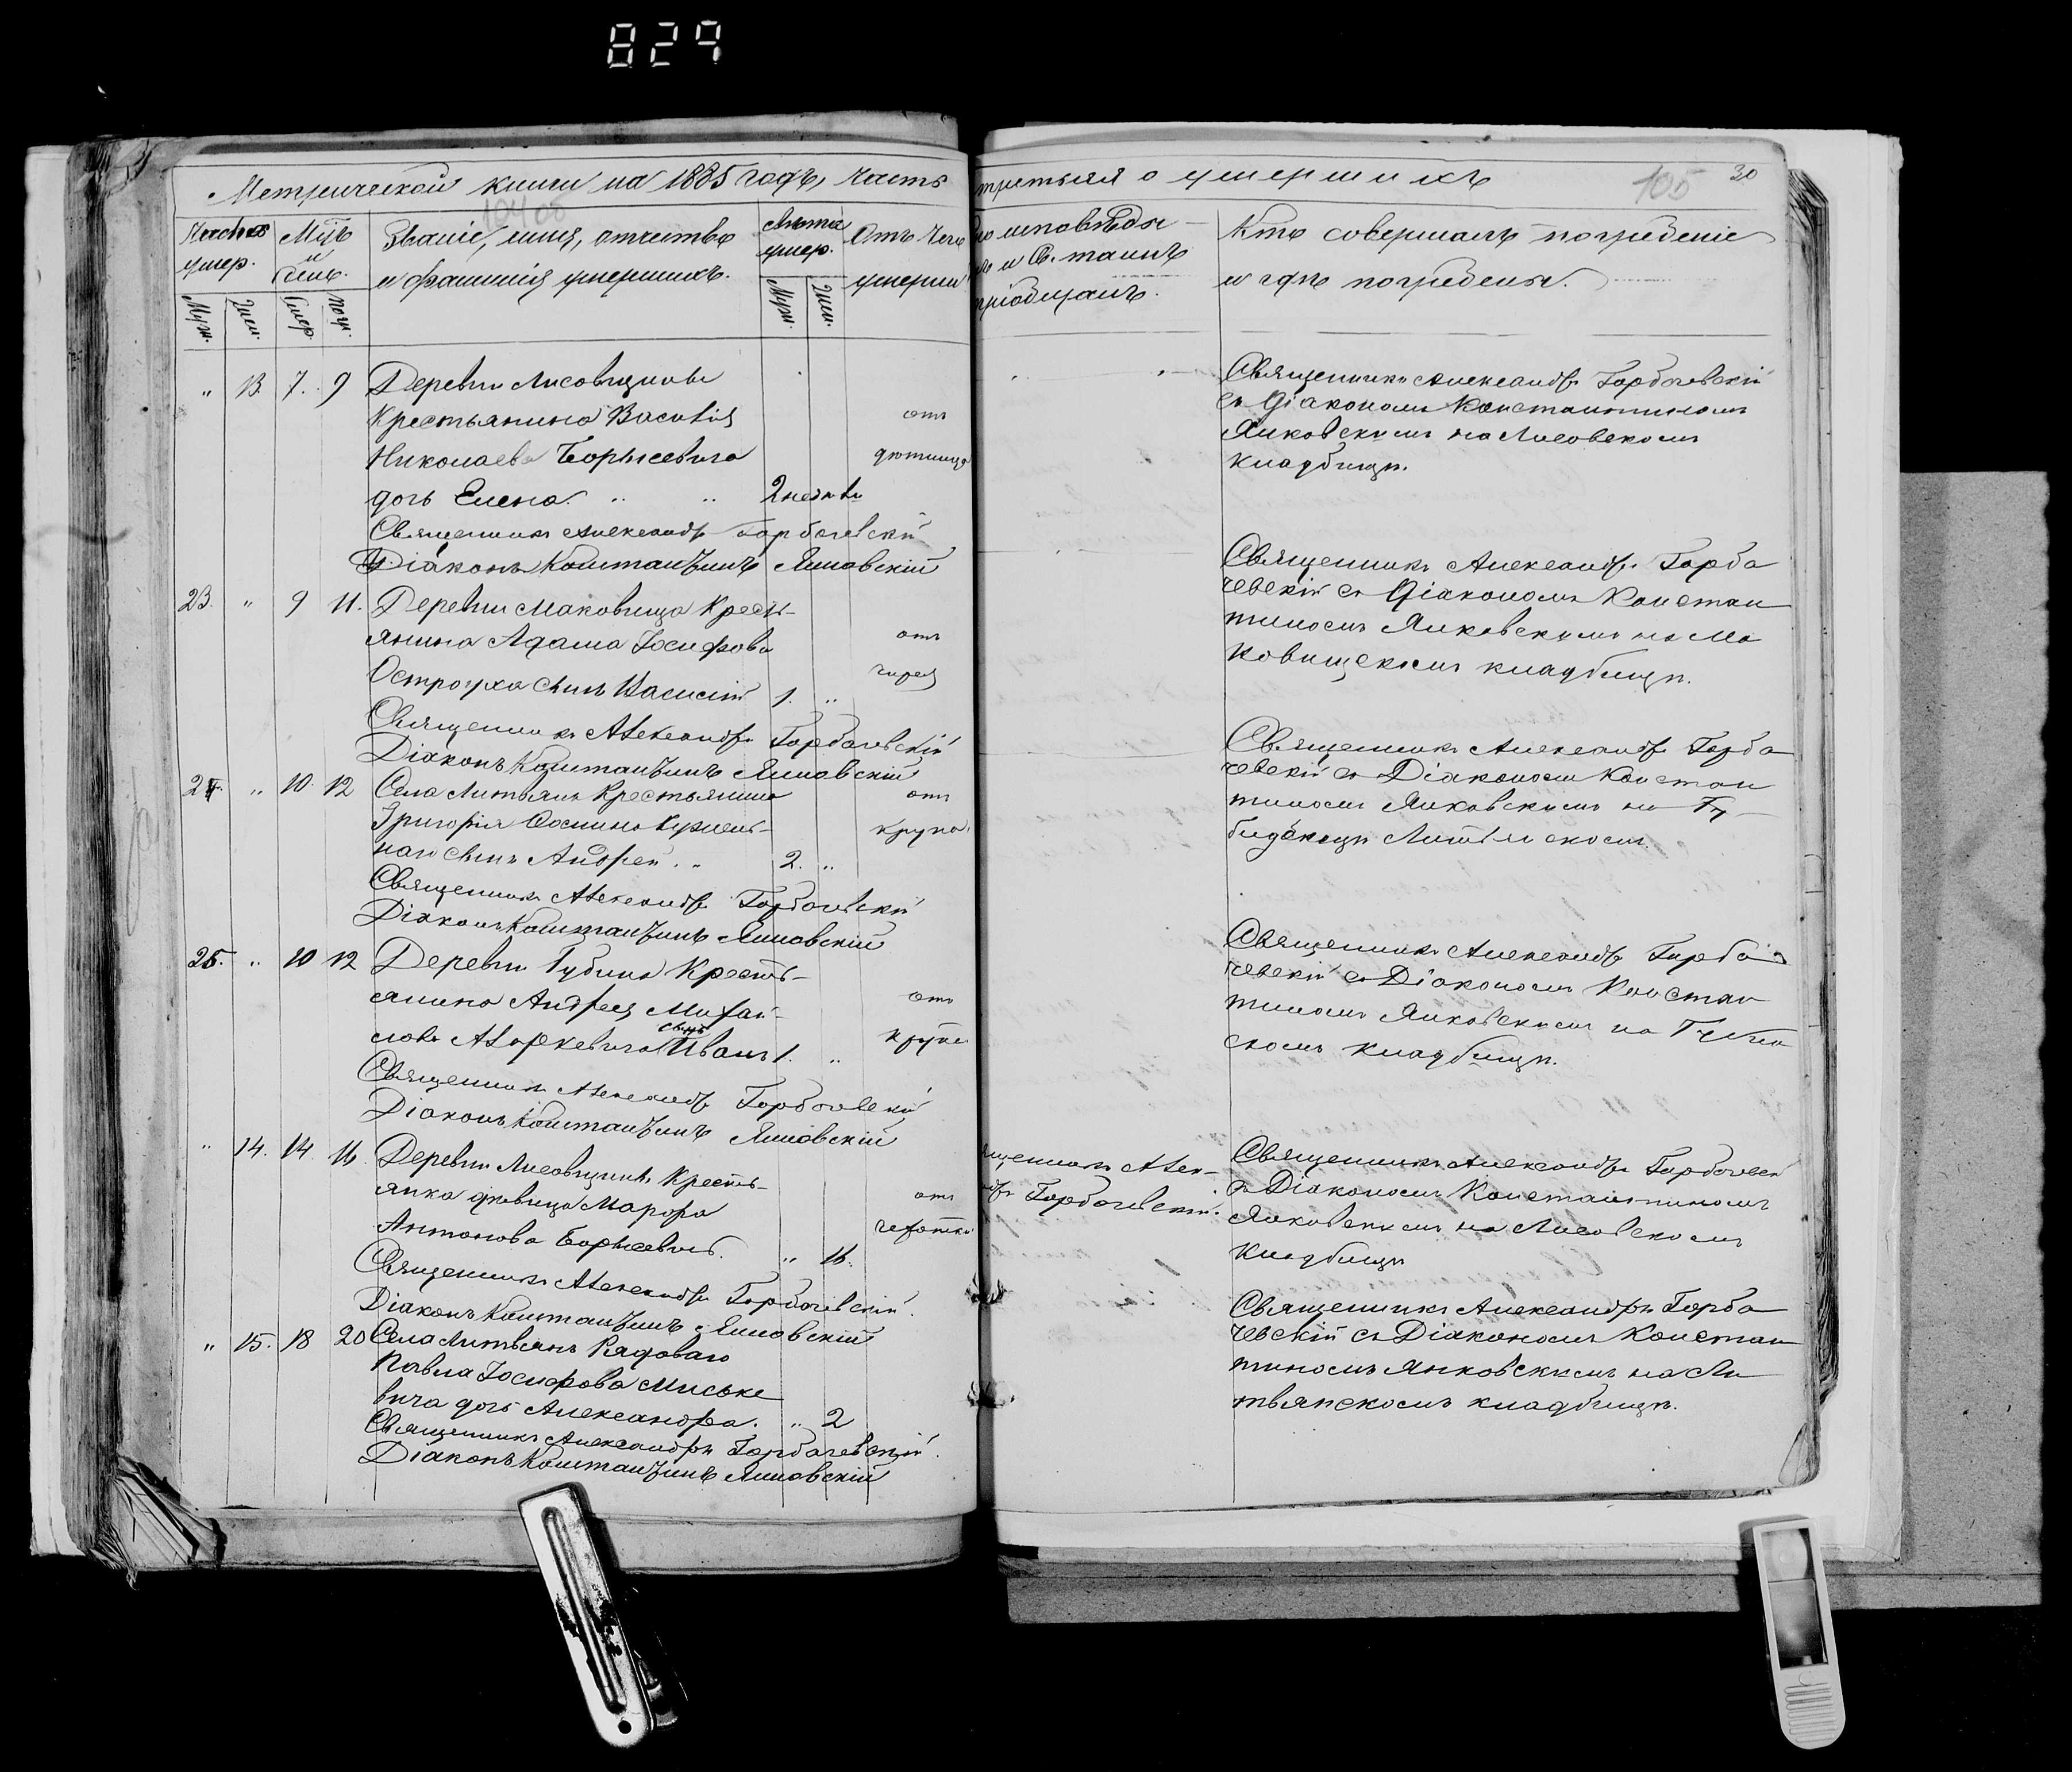 829
Метрической книги на 1885 годъ, часть
третья о умершихъ
105
30
104 об
умер.
Мѣс
и
день.
Званіе, имя, отчество
и фамилія умершихъ.
Лѣта
умер.
Отъ чего
умерли
Муж.
Жен.
Умер.
Погр.
Муж.
Жен.
исповѣдов
и Св. таинъ
пріобщалъ.
Кто совершалъ погребеніе
и гдѣ погребены.
" 13. 7. 9 Деревни Лисовщины
Крестьянина Василія отъ
Николаева Борисевича
дочь Елена. " " 2 недѣли
Священникъ Александръ Горбачевскій
Діаконъ Константинъ Янковскій
Священникъ Александръ Горбачевскій
съ Діакономъ Константиномъ
Янковскимъ на Лисовскомъ
кладбищѣ.
23. " 9 11. Деревни Маковища Кресть-
янина Адама Іосифова отъ
Остроуха сынъ Василій 1. "
Священникъ Александръ Горбачевскій
Діаконъ Константинъ Янковскій
Священникъ Александръ Горба
чевскій съ Діакономъ Констан
тиномъ Янковскимъ на Ма
ковищскомъ кладбищѣ.
24. " 10. 12 Села Литвянъ Крестьянина отъ
Григорія крупа
сынъ Андрей. " 2. "
Священникъ Александръ Горбачевскій
Діаконъ Константинъ Янковскій
Священникъ Александръ Горба
чевскій съ Діакономъ Констан
тиномъ Янковскимъ на
25. " 10 12 Деревни Губина Кресть-
янина Андрея Михай- отъ
лова сынъ Иванъ 1. " крупа
Священникъ Александръ Горбачевскій
Діаконъ Константинъ Янковскій
Священникъ Александръ Горба
чевскій съ Діакономъ Констан
тиномъ Янковскимъ на Губин
скомъ кладбищѣ.
" 14. 14 16. Деревни Лисовщины Кресть-
янка дѣвица Марфа отъ
Антонова Борисевичъ. " 16. чахотки
Священникъ Александръ Горбачевскій.
Діаконъ Константинъ Янковскій
щенникъ Алек-
ндръ Горбачевскій.
Священникъ Александръ Горбачевск
съ Діакономъ Константиномъ
Янковскимъ на Лисовскомъ
кладбищѣ
" 15. 18 20 Села Литвянъ Рядоваго
Павла Іосифова Миське
вича дочь Александра. " 2
Священникъ Александръ Горбачевскій.
Діаконъ Константинъ Янковскій
Священникъ Александръ Горба
чевскій съ Діакономъ Констан
тиномъ Янковскимъ на Ли
твянскомъ кладбищѣ.